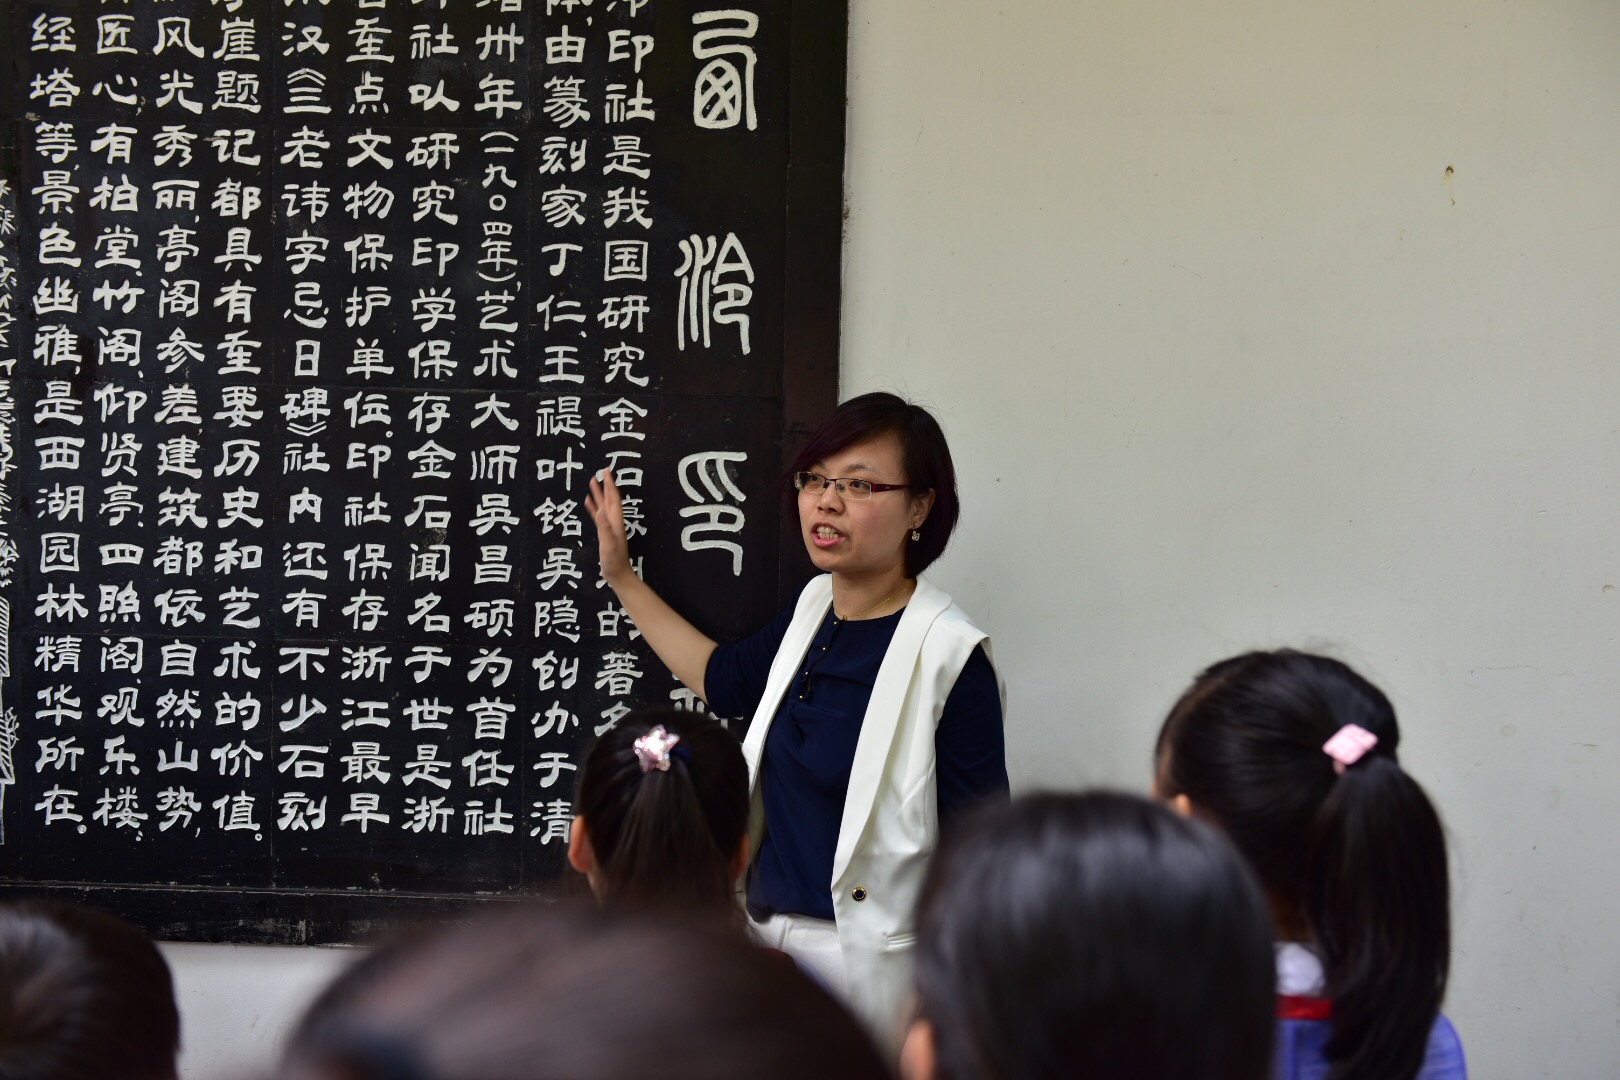 西泠印
印社是我国研究金石篆刻的著名
体,由篆刻家丁仁、王禔、叶铭、吳隐创办于清
绪卅年(一九〇四年),艺术大师吳昌硕为首任社
印社以研究印学保存金石闻名于世是浙
重点文物保护单位。印社保存浙江最早
汉《三老讳字忌日碑》社内还有不少石刻
崖题记都具有重要历史和艺术的价值。
风光秀丽,亭阁参差,建筑都依自然山势,
匠心,有柏堂、竹阁、仰贤亭、四照阁、观乐楼、
经塔等,景色幽雅,是西湖园林精华所在。